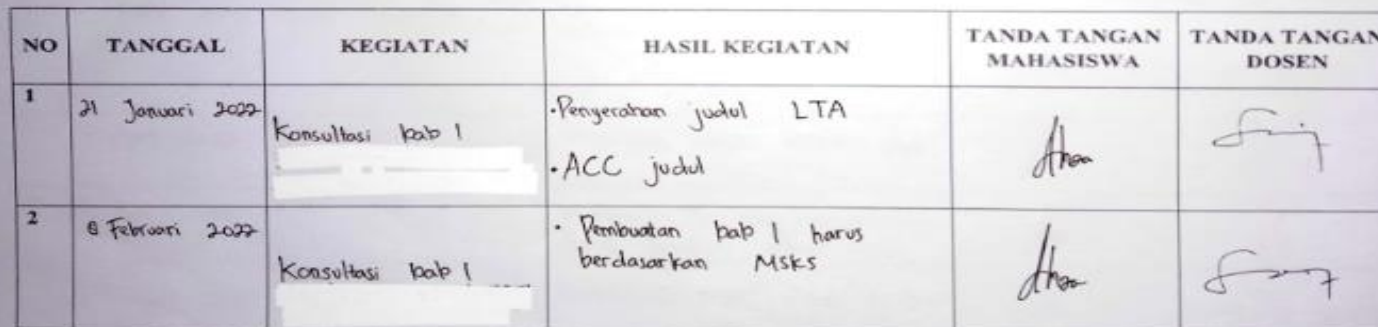 NO TANGGAL KEGIATAN HASIL KEGIATAN TANDA TANGAN MAHASISWA TANDA TANGAN DOSEN
1
21 Januari 2022
Konsultasi bab 1
·Pengerahan judul LTA
·ACC judul
2
8 Februari 2022
Konsultasi bab 1
· Pembuatan bab 1 harus
berdasarkan MSKS